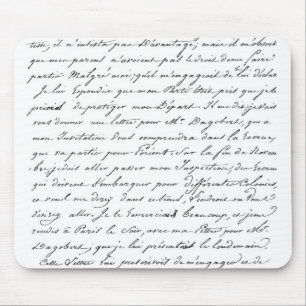 tise, il n'insista pas D'avantage, mais il m'observa
que mes parens n'avoient pas le droit de me faire
partir Malgré moi; qu'il m'engageoit de lui déclar
Je lui répondis que mon Parti étoit pris, que je le
priois de protéger mon Départ. Il me dit
vous donner une lettre pour Mr. Dagobert, qui a
mon Invitation Vous comprendra dans la Recrue
qui va partir pour l'orient. Sur la fin de Novem
bre, je dois aller passer mon Inspection, des Recrues
qui doivent s'embarquer pour différentes Colonies,
Vous me direz dans celle où Voudrois
désirez aller. Je le remerciai Beaucoup, et je me
rendis à Paris le Soir, avec ma lettre pour Mr.
Dagobert, que je lui présentai le Lendemain.
Cette lettre lui prescrivoit de m'engager et de